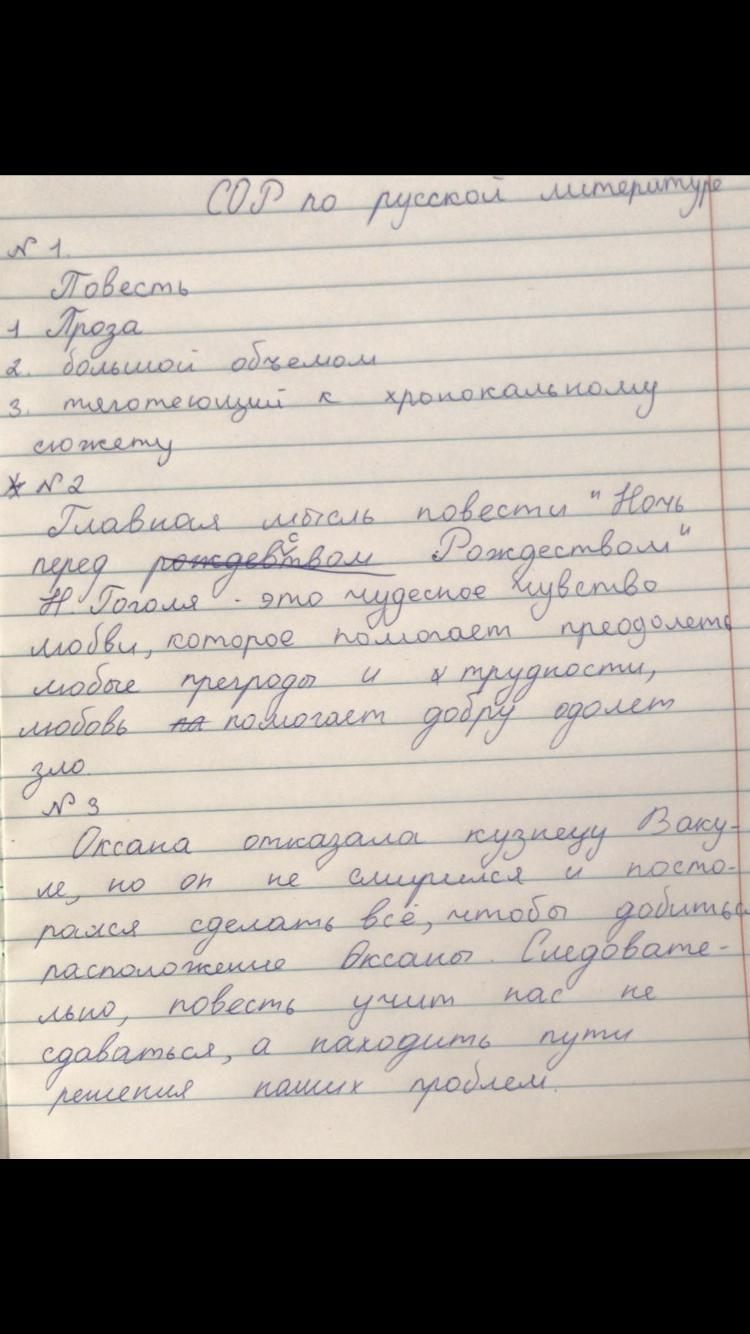 СОР по русской литературе
№ 1.
Повесть
1 Проза
2. большой объемом
3. тяготеющий к хронокальному
сюжету
№ 2
Главная мысль повести "Ночь
перед рождевством Рождеством"
Н. Гоголя - это чудесное чувство
любви, которое помогает преодолеть
любые прегроды и трудности,
любовь па помогает добру одолет
зло.
№ 3
Оксана отказала кузнецу Ваку-
ле, но он не смирился и посто-
рался сделать всё, чтобы добиться
расположение Оксаны. Следовате-
льно, повесть учит нас не
сдаваться, а находить пути
решения наших проблем.